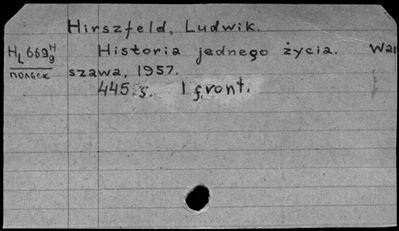 Hirszfeld, Ludwik.
HL669H9 Historia jednego życia. War
польск szawa, 1957.
445 s. 1 front.